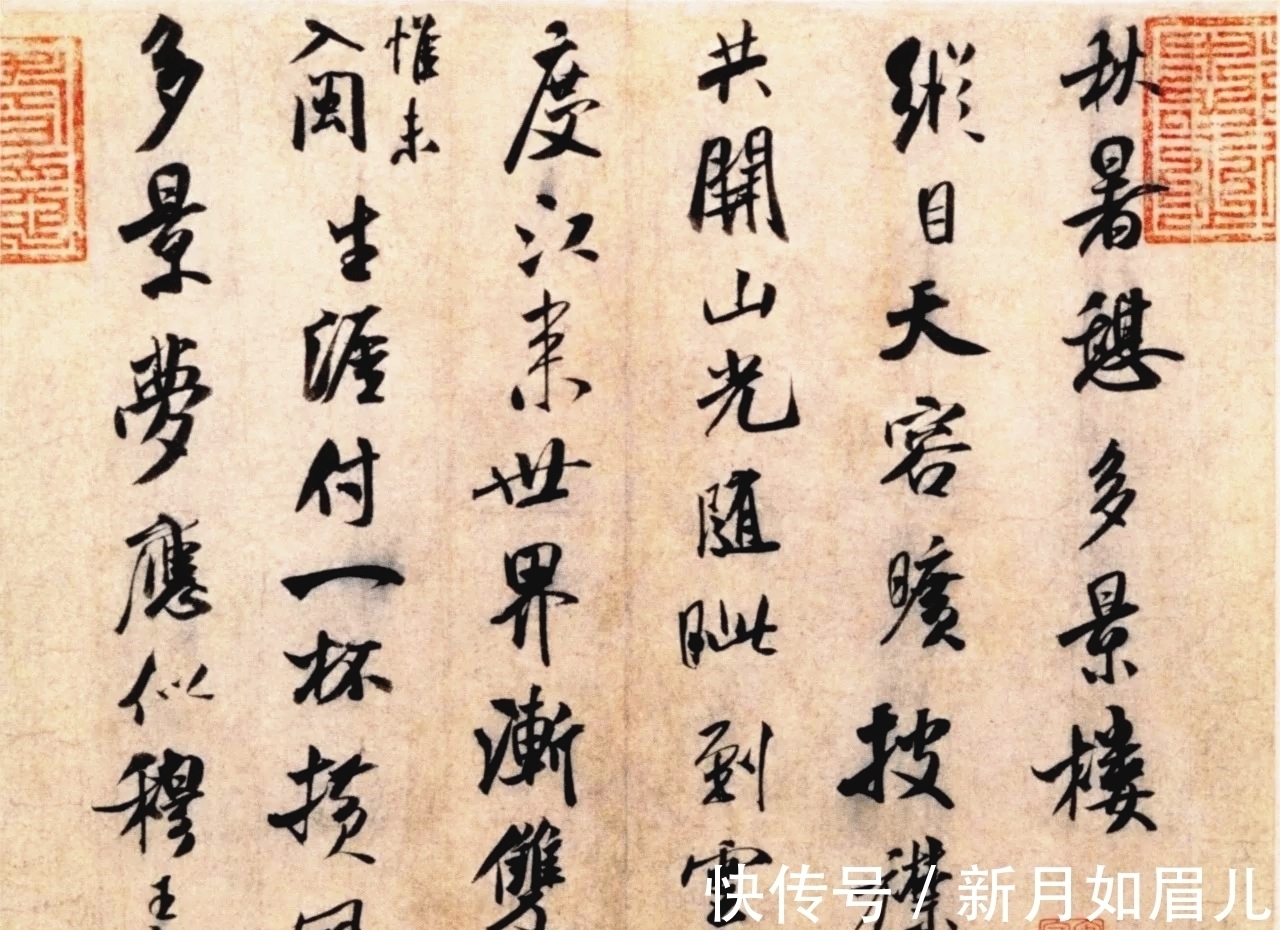 秋暑憩多景樓
縱目天容曠披襟
共開山光隨眦到雲
慶江來世界漸雙
惟未
入閩生涯付一杯横
多景夢應似穆王
快传号 / 新月如眉儿